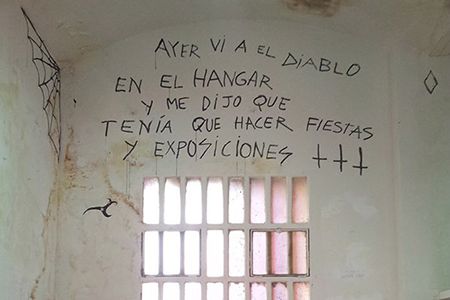 AYER VI A EL DIABLO
EN EL HANGAR
Y ME DIJO QUE
TENÍA QUE HACER FIESTAS
Y EXPOSICIONES